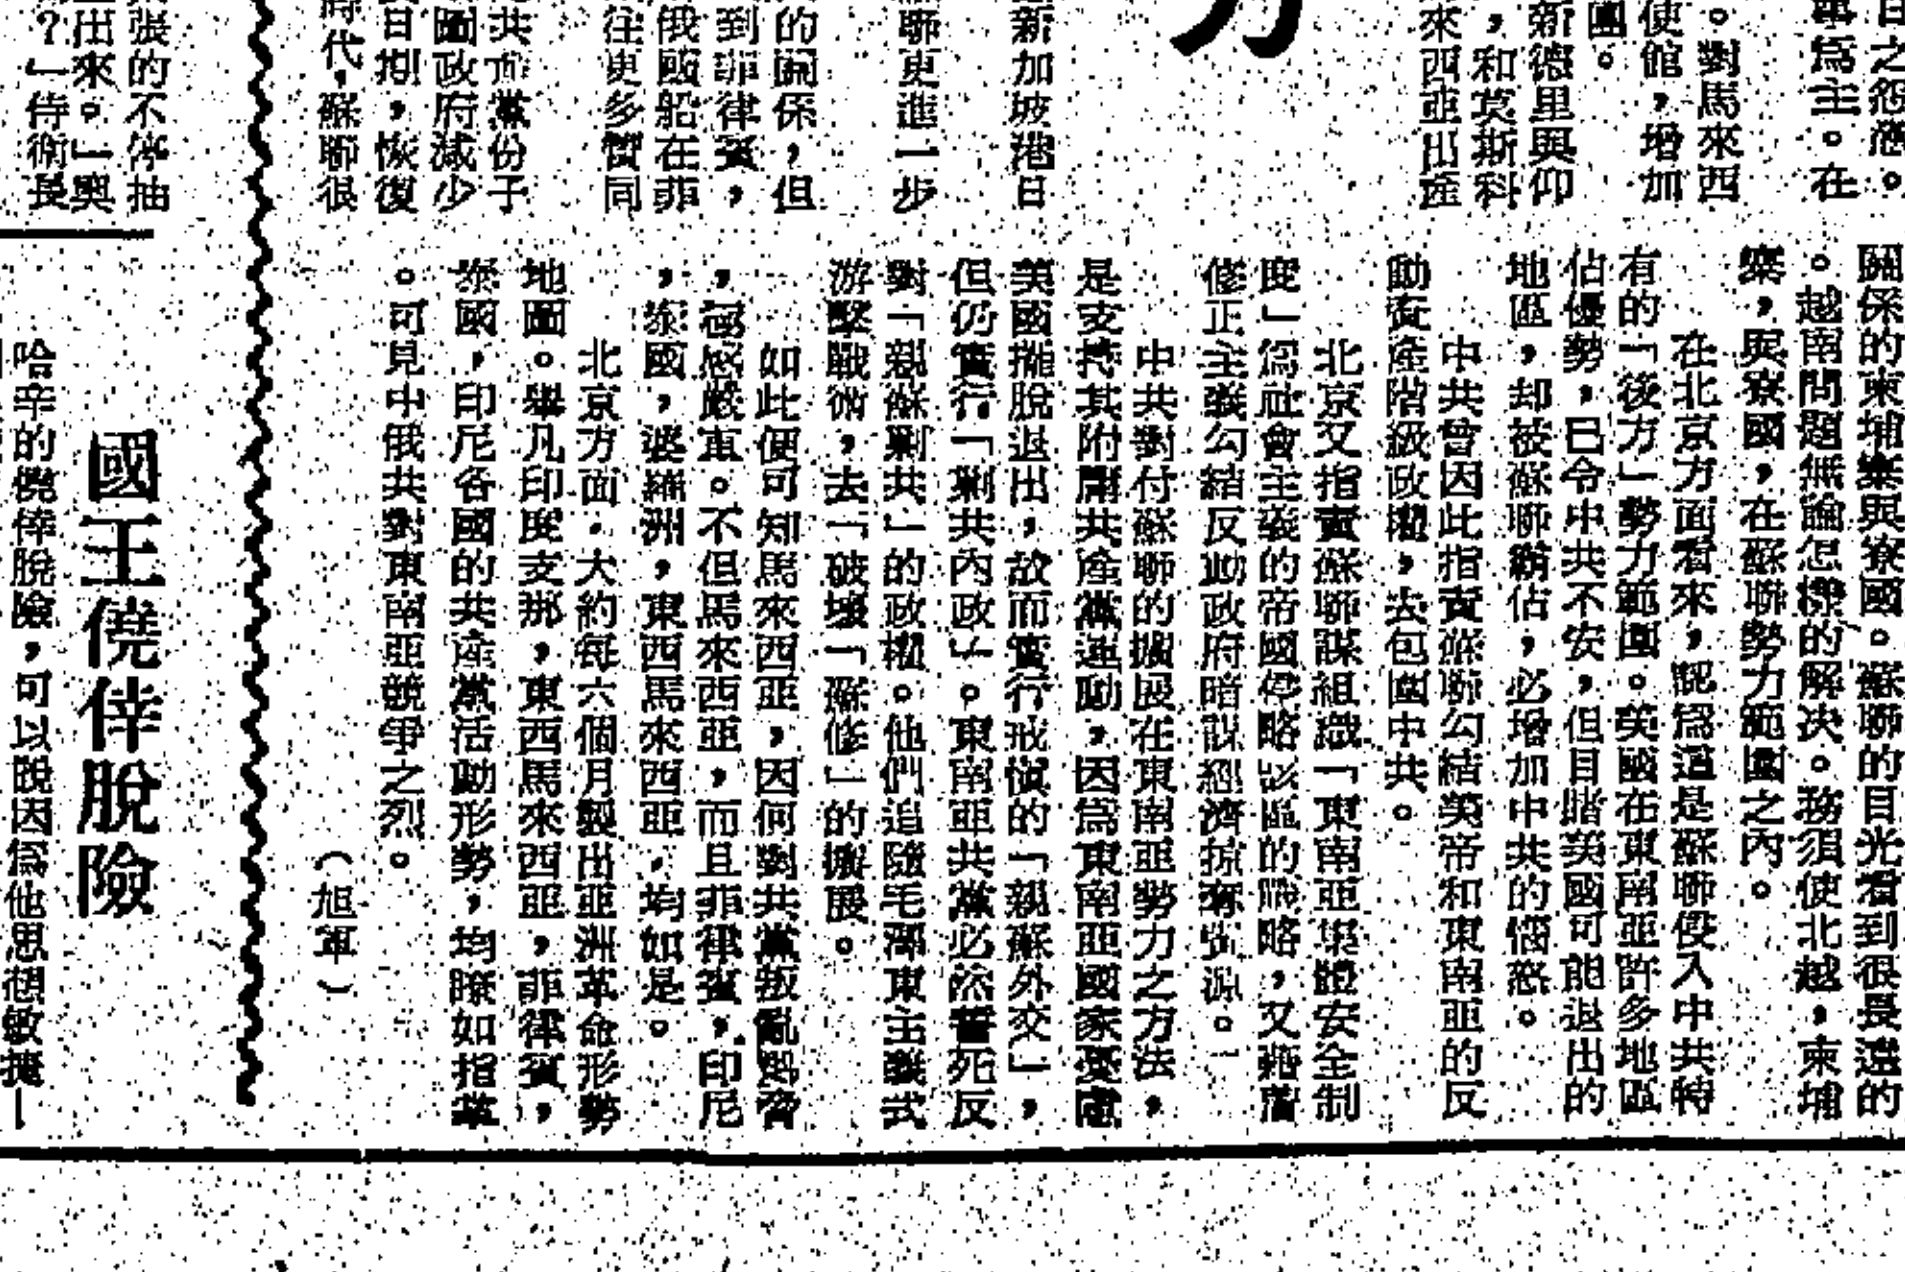 日之怨懣。
事爲主。在
。對馬來西
使館，增加
團。
新德里與仰
，和莫斯科
來西亞出產
力
新加坡港日
聯更進一步
的關係，但
到菲律賓，
俄國船在菲
往更多贊同
共產黨份子
圖政府減少
日期，恢復
時代，蘇聯很
張的不停抽
出來。」奧
？」侍衛長
關係的柬埔寨與寮國。蘇聯的目光看到很長遠的
。越南問題無論怎樣的解決。務須使北越，柬埔
寨，與寮國，在蘇聯勢力範圍之內。
在北京方面看來，認爲這是蘇聯侵入中共特
有的「後方」勢力範圍。美國在東南亞許多地區
佔優勢，已令中共不安，但目睹美國可能退出的
地區，却被蘇聯霸佔，必增加中共的惱怒。
中共曾因此指責蘇聯勾結美帝和東南亞的反
動資產階級政權，去包圍中共。
北京又指責蘇聯謀組織「東南亞集體安全制
度」爲社會主義的帝國侵略該區的戰略，又藉着
修正主義勾結反動政府暗謀經濟掠奪資源。
中共對付蘇聯的擴展在東南亞勢力之方法，
是支持其附庸共產黨運動，因爲東南亞國家憂慮
美國擺脫退出，故而實行戒愼的「親蘇外交」，
但仍實行「剿共內政」。東南亞共黨必然誓死反
對「親蘇剿共」的政權。他們追隨毛澤東主義式
游擊戰術，去「破壞「蘇修」的擴展。
如此便可知馬來西亞，因何對共黨叛亂與脅
，極感嚴重。不但馬來西亞，而且菲律賓，印尼
，泰國，婆羅洲，東西馬來西亞，均如是。
北京方面．大約每六個月製出亞洲革命形勢
地圖。舉凡印度支那，東西馬來西亞，菲律賓，
泰國，印尼各國的共產黨活動形勢，均瞭如指掌
。可見中俄共對東南亞競爭之烈。
（旭軍）
國王僥倖脫險
哈辛的僥倖脫險，可以說因爲他思想敏捷－